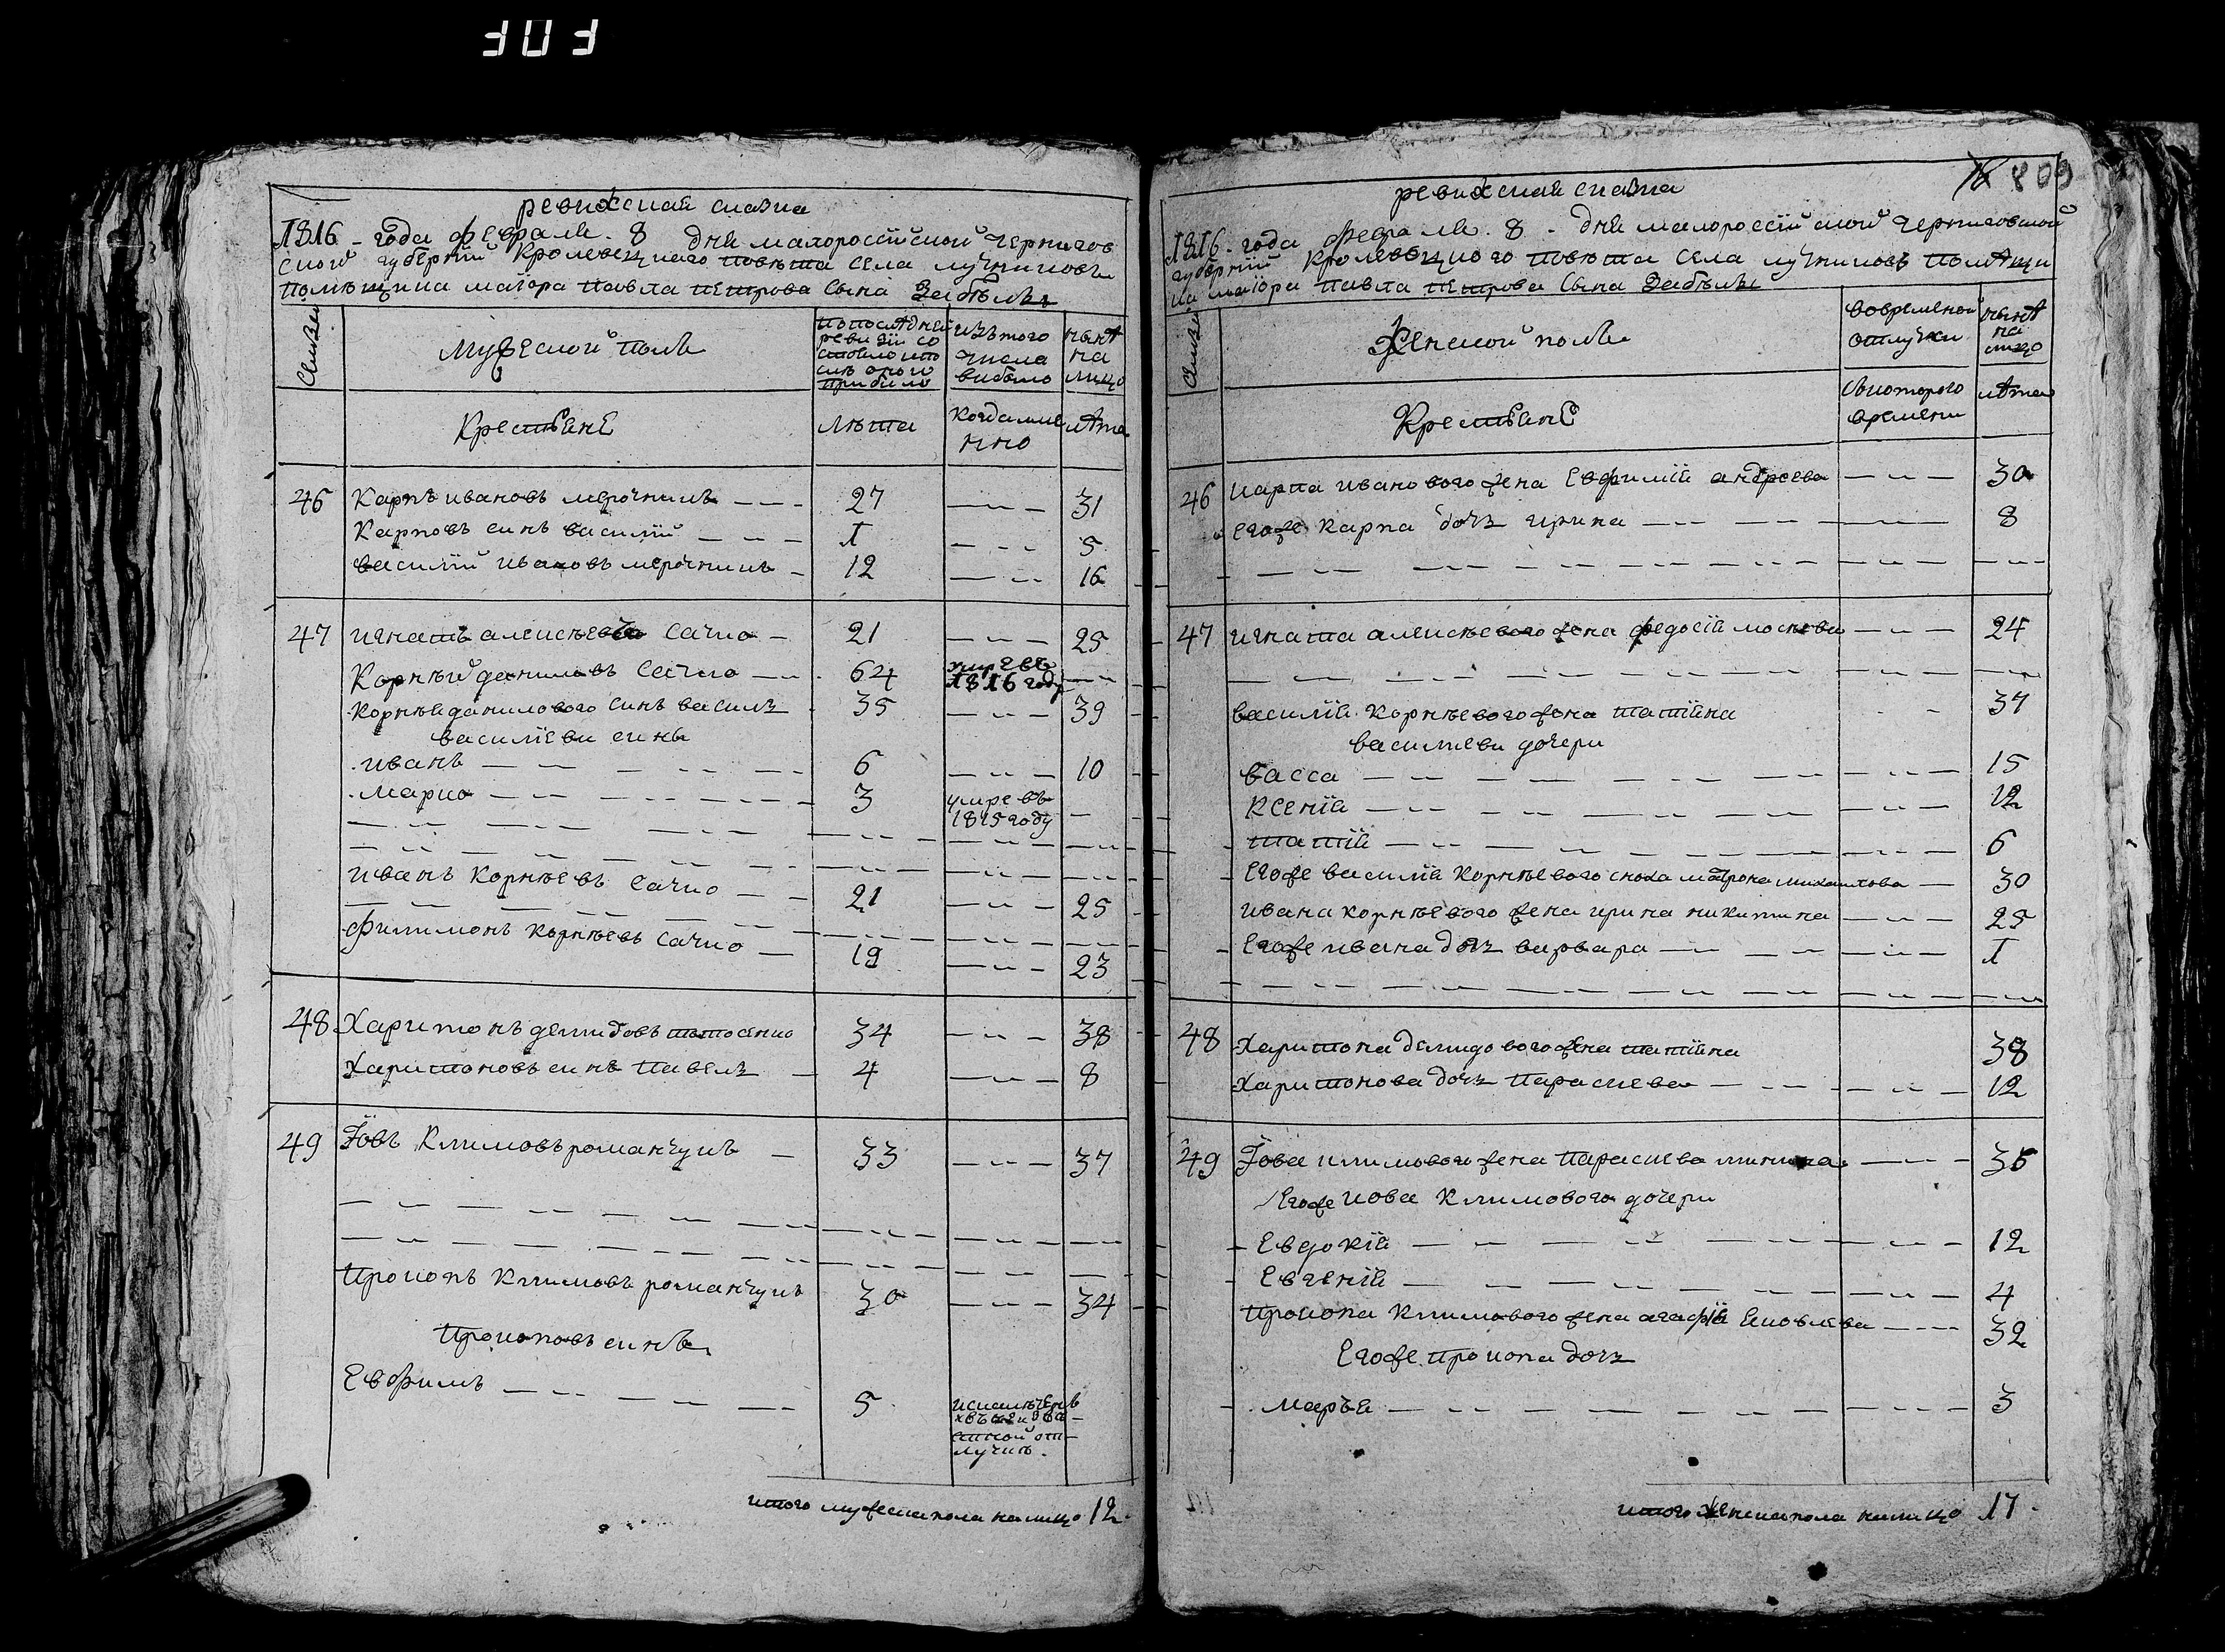 303
ревижская сказка
1816 - года февраля. 8 дня малороссійской чернигов
ской губерніи Кролевецкаго повѣта села лучниковъ
помѣщика маіора павла петрова сына Забѣлы
Мужеской полъ
по послѣдней
ревизіи со
стояло и по
слѣ оного
прибыло
изъ того
числа
выбыло
нынѣ
на
лицо
Крестьяне
лѣта
когда име
нно
лѣта
46 Карпъ ивановъ мерочникъ 27 31
Карповъ синъ василій 1 5
василій ивановъ мерочникъ 12 16
47 игнатъ алексѣевъ Сачко 21 25
Корнѣй даниловъ Сачко 64 умре въ 1816 году
Корнѣя данилового синъ василь 35 39
василіеви сины
иванъ 6 10
марко 3 умре въ 1815 году
иванъ Корнѣевъ Сачко 21 25
филимонъ корнѣевъ Сачко 19 23
48 Харитонъ демидовъ 34 38
Харитоновъ синъ павелъ 4 8
49 Іовъ Климовъ романчукъ 33 37
Прокопъ Климовъ романчукъ 30 34
Прокоповъ синъ
Евфимъ 5
итого мужеска пола налицо 12
809
ревижская сказка
1816 - года февраля. 8 - дня малороссійской черниговской
губерніи Кролевецкого повѣта села лучниковъ помѣщи
ка маіора павла петрова сына Забѣлы
Женской полъ
во временной
отлучки
нынѣ
на
лицо
Крестьяне
с которого
времени
лѣта
46 карпа иванового жена Евфимія андреева 30
Егоже карпа дочь ирина 8
47 игната алексѣевого жена федосія моисѣева 24
василія корнѣевого жена татіяна 37
василиеви дочери
васса 15
Ксенія 12
татія 6
Егоже василія Корнѣевого сноха матрона михаилова 30
ивана корнѣевого жена ирина никитина 25
Егоже ивана дочь варвара 1
48 Харитона демидового жена татіяна 38
Харитонова дочь параскева 12
49 Іова климового жена параскева минина 35
Егоже иова климового дочери
Евдокія 12
Евгенія 4
Прокопа Климового жена агафія Яковлева 32
Егоже прокопа дочь
марья 3
итого женска пола налицо 17